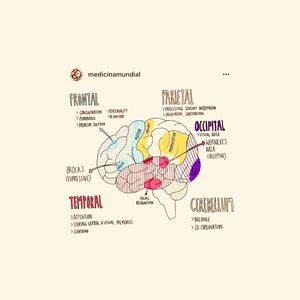 medicinamundial
FRONTAL
> CONCENTRATION > PERSONALITY
> PLANNING > BEHAVIOUR
> PROBLEM SOLVING
PARIETAL
> PROCESSING SENSORY INFORMATION
> CALCULATION, CONSTRUCTION
OCCIPITAL
> VISUAL AREA
WERNICKE'S
AREA
(RECEPTIVE)
BROCA'S
(EXPRESSIVE)
FACIAL
RECOGNITION
TEMPORAL
> ATTENTION
> CODING VERBAL & VISUAL MEMORIES
> LEARNING
CEREBELLUM
> BALANCE
> CO-ORDINATION